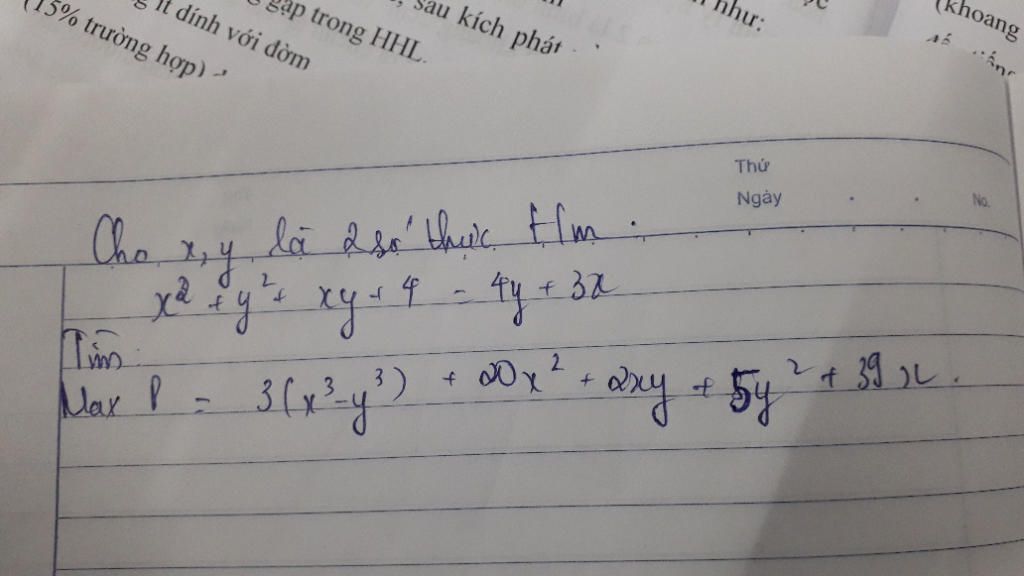 gặp trong HHL.
sau kích phát
như:
(khoang
ít dính với đờm
(15% trường hợp)
Thứ
Ngày
No.
Cho x, y là 2 số thực t/m :
x² + y² + xy + 4 = 4y + 3x
Tìm :
Max P = 3(x³ - y³) + 20x² + 2xy + 5y² + 39x.